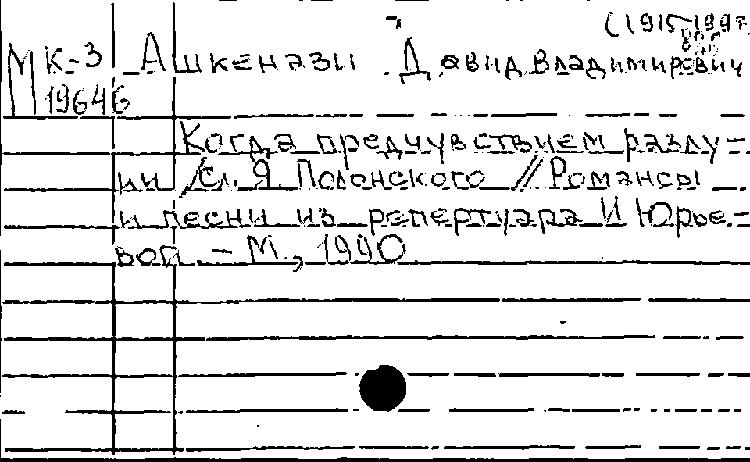 (1915-1997
МК-3 Ашкенази Давид Владимирович
19646
Когда предчувствием разлу-
ки / Сл. Я. Полонского // Романсы
и песни из репертуара И Юрье-
вой. - М., 1990